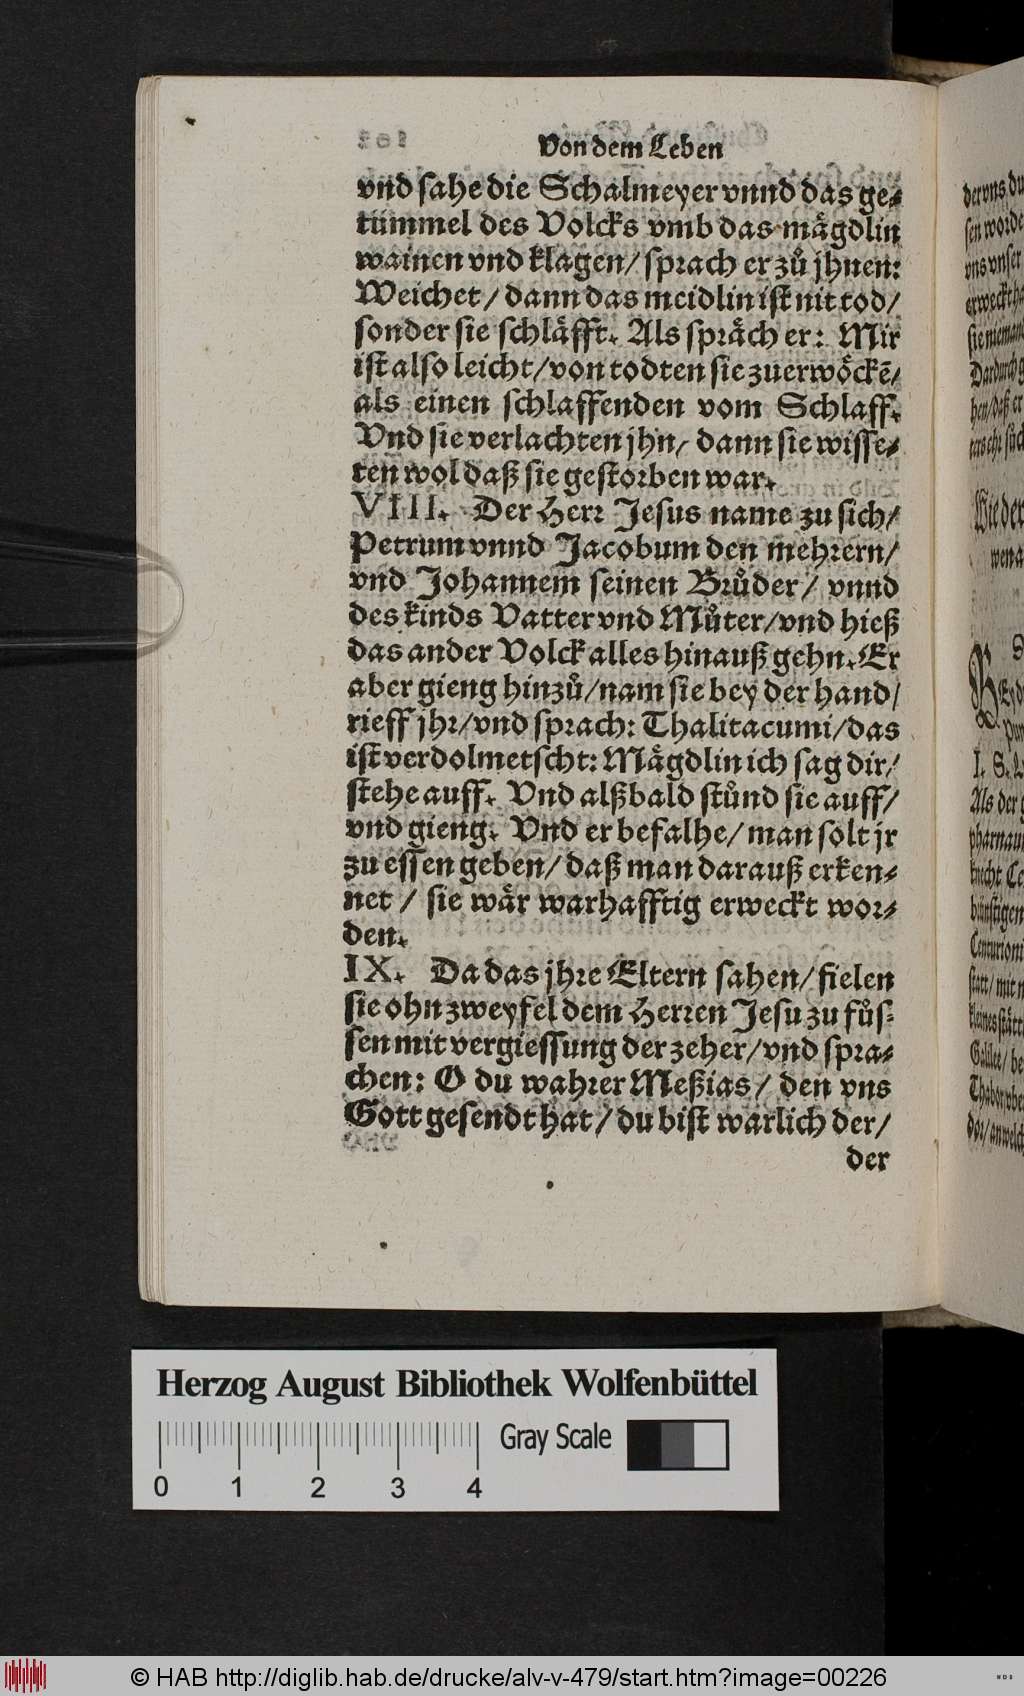 Von dem Leben
vnd sahe die Schalmeyer vnnd das ge⸗
tümmel des Volcks vmb das mägdlin
wainen vnd klagen/ sprach er zů jhnen:
Weichet/ dann das meidlin ist nit tod/
sonder sie schläfft. Als spräch er: Mir
ist also leicht/ von todten sie zuerwöckē/
als einen schlaffenden vom Schlaff.
Vnd sie verlachten jhn/ dann sie wisse⸗
ten wol daß sie gestorben war.
VIII. Der Herr Jesus name zu sich/
Petrum vnnd Jacobum den mehrern/
vnd Johannem seinen Brůder/ vnnd
des kinds Vatter vnd Můter/ vnd hieß
das ander Volck alles hinauß gehn. Er
aber gieng hinzů/ nam sie bey der hand/
rieff jhr/ vnd sprach: Thalitacumi/ das
ist verdolmetscht: Mägdlin ich sag dir/
stehe auff. Vnd alßbald stůnd sie auff/
vnd gieng. Vnd er befalhe/ man solt jr
zu essen geben/ daß man darauß erken⸗
net / sie wär warhafftig erweckt wor⸗
den.
IX. Da das jhre Eltern sahen/ fielen
sie ohn zweyfel dem Herren Jesu zu fůs⸗
sen mit vergiessung der zeher/ vnd spra⸗
chen: O du wahrer Meßias/ den vns
Gott gesendt hat/ du bist warlich der/
der
der vns du
sen worde
vns vnser
erweckt ha
sie nieman
Dardurch g
hen/ daß er
Wie der
wen a
I. S. L
Als der g
pharnau
knecht Ce
bünstigen
Centurioni
statt/ mit n
kleines stätt
Galilee/ be
Thabor vber
dor/ an welch
Herzog August Bibliothek Wolfenbüttel
Gray Scale
0 1 2 3 4
© HAB http://diglib.hab.de/drucke/alv-v-479/start.htm?image=00226